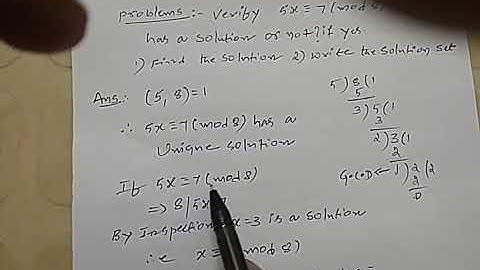 Problems:- Verify 5x≡7(mod
has a solution or not? if yes
1) Find the solution 2) write the solution set
Ans:- (5, 8)=1
∴ 5x≡7(mod 8) has a
Unique solution
If 5x≡7(mod 8)
=> 8|5x
By Inspection x=3 is a solution
i.e x≡ mod 8)
5)8(1
5
3)5(1
3
2)3(1
2
G.C.D← 1)2(2
2
0